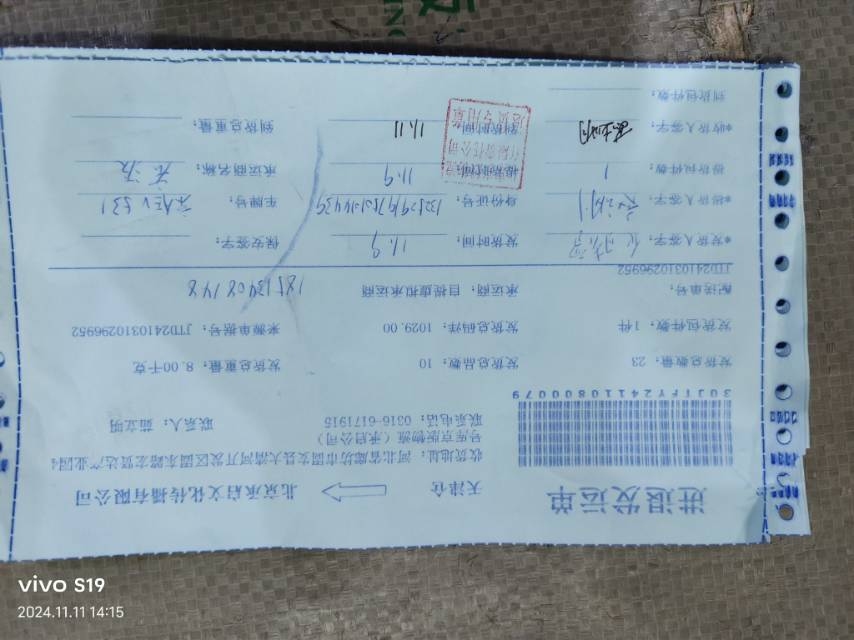 进退发运单 天津仓 北京承启文化传播有限公司
收货地址：河北省廊坊市固安县大清河开发区固东路宏贤达产业园4
号库京版物流（承启公司）
联系电话：0316-6171915 联系人：茹立明
30JTFY24110800079
发货总数量：23 发货总品数：10 发货总重量：8.00千克
发货包件数：1件 发货总码洋：1029.00 来源单据号：JTD2410310296952
配送单号： 承运商：自提虚拟承运商 18513408148
JTD2410310296952
*发货人签字： 发货时间：11.9 保安签字：
*提货人签字： 身份证号： 车牌号：
提货包件数：1 提货时间：11.9 承运商名称：
*收货人签字： 到货时间：11.11 到货总重量：
到货包件数：
退货专用章
vivo S19
2024.11.11 14:15